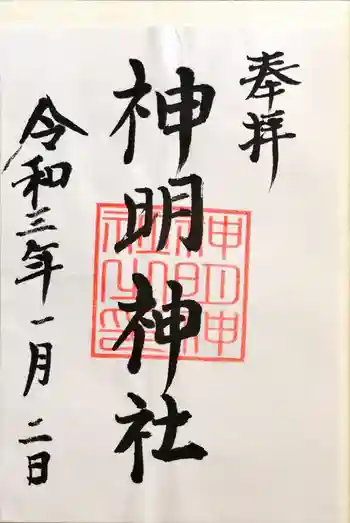 奉拝
神明神社
神明神
社之印
令和三年一月二日